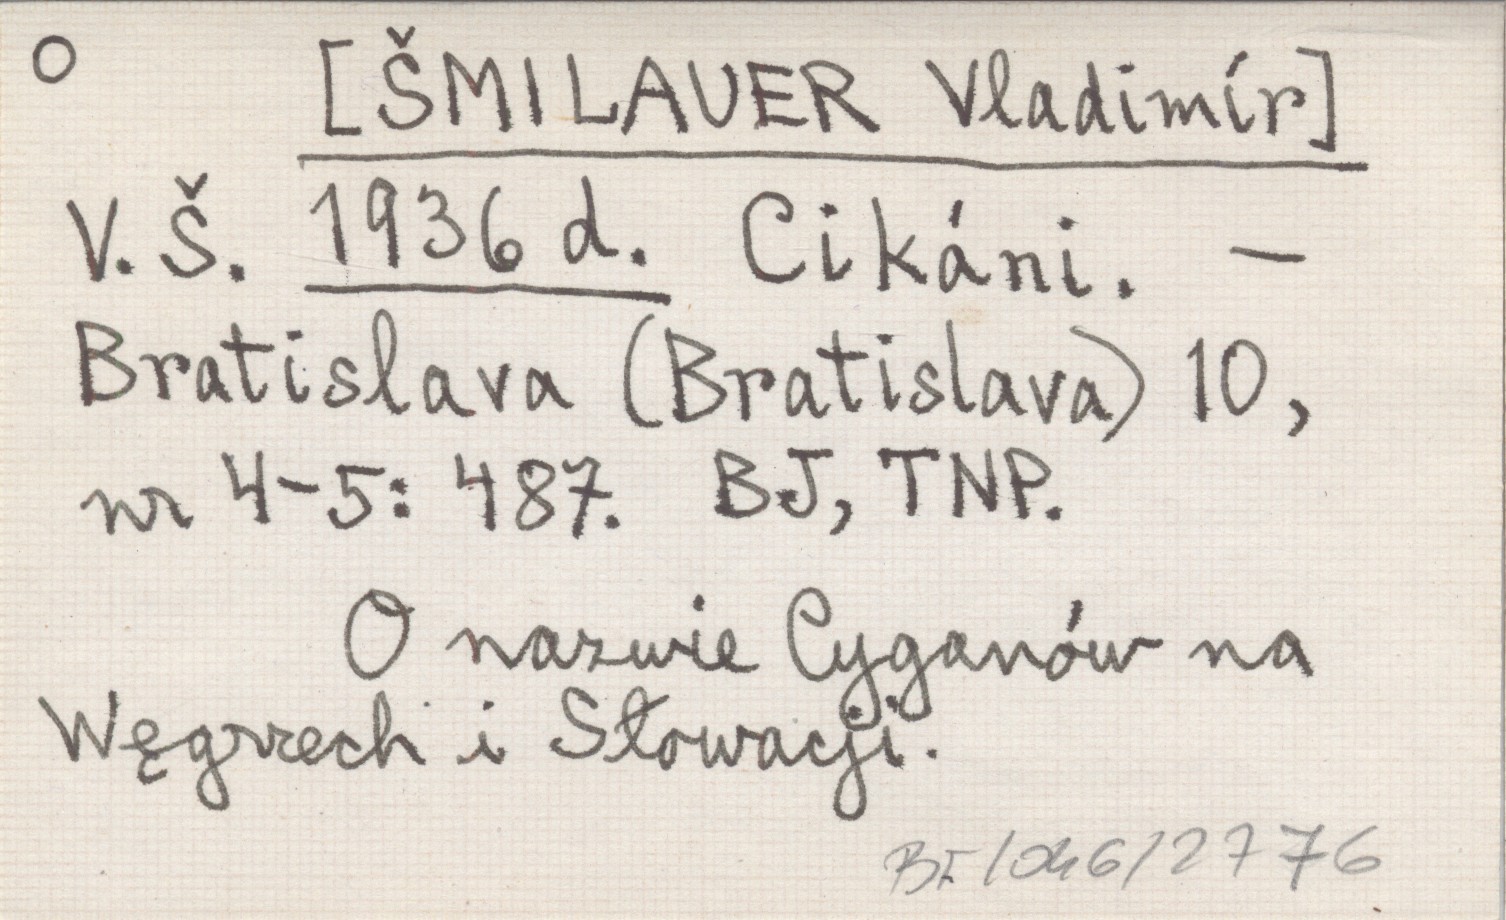 O [ŠMILAUER Vladimír]
V. Š. 1936 d. Cikáni. –
Bratislava (Bratislava) 10,
nr 4-5: 487. BJ, TNP.
O nazwie Cyganów na
Węgrzech i Słowacji.
/2776